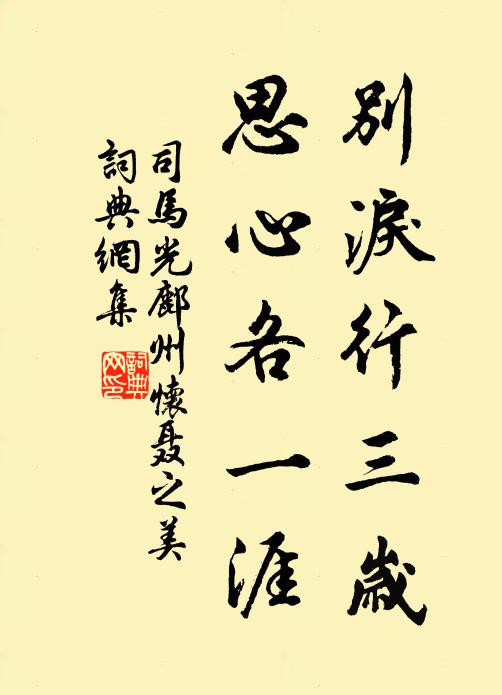 別淚行三歲
思心各一涯
司馬光鄜州懷聶之美
詞典網集
詞典網印